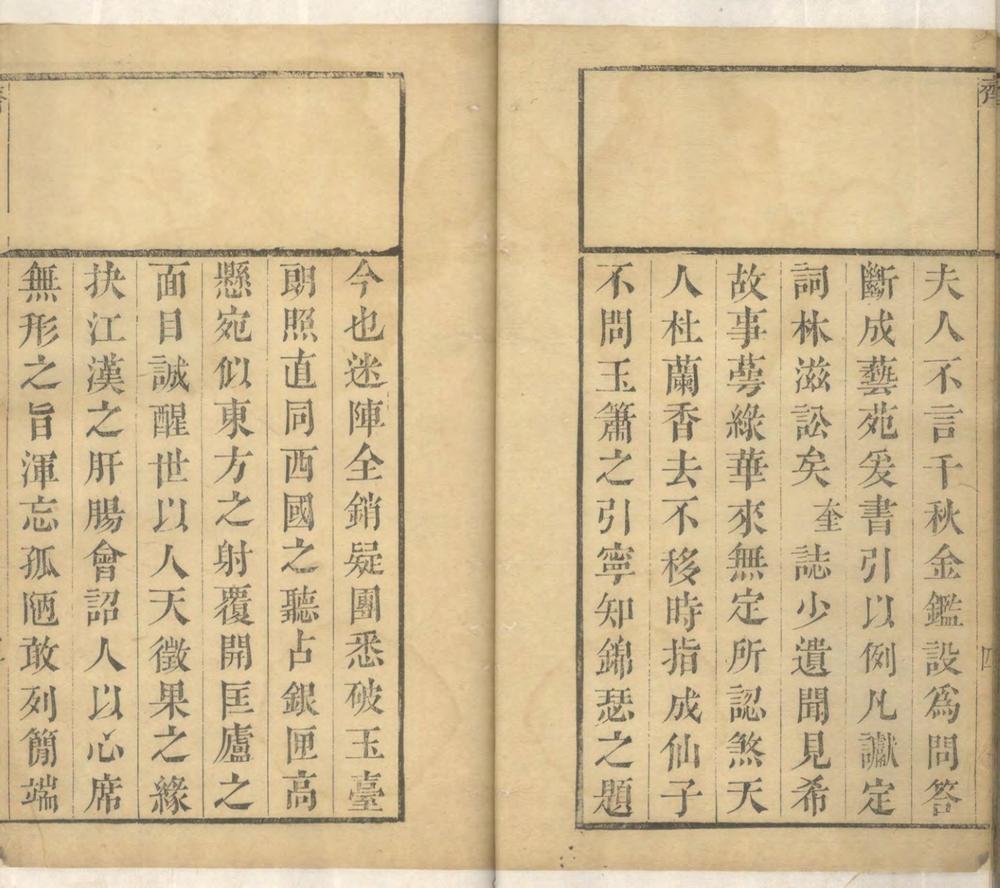 夫人不言千秋金鑑設為問答
斷成藝苑爰書引以例凡讞定
詞林滋訟矣奎誌少遺聞見希
故事萼綠華來無定所認煞天
人杜蘭香去不移時指成仙子
不問玉簫之引寧知錦瑟之題
今也迷陣全銷疑團悉破玉臺
朗照直同西國之聽占銀匣高
懸宛似東方之射覆開匡廬之
面目誠醒世以人天徵果之緣
抉江漢之肝腸會詔人以心席
無形之旨渾忘孤陋敢列簡端
四